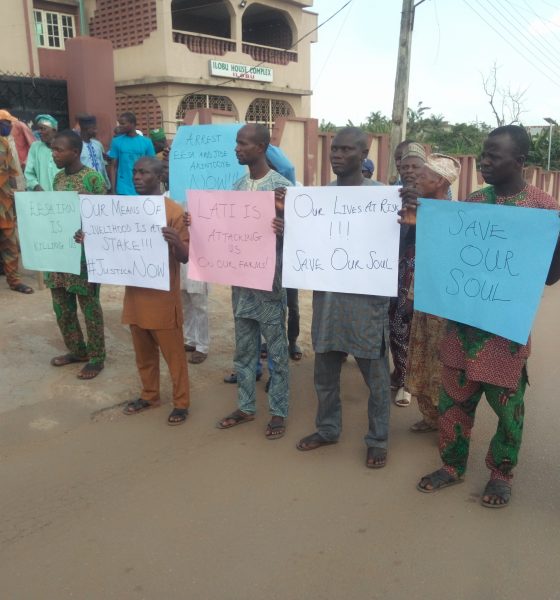 ILOBU HOUSE COMPLEX
ILOBU
EESA IFON
IS
KILLING US
OUR MEANS OF
LIVELIHOOD IS AT
STAKE!!!
#JUSTICE NOW
ARREST
EESA AND JIDE
AKINTOODE
NOW!!!
LATI IS
ATTACKING
US
ON OUR FARMS!
OUR LIVES AT RISK
!!!
SAVE OUR SOUL
SAVE
OUR
SOUL